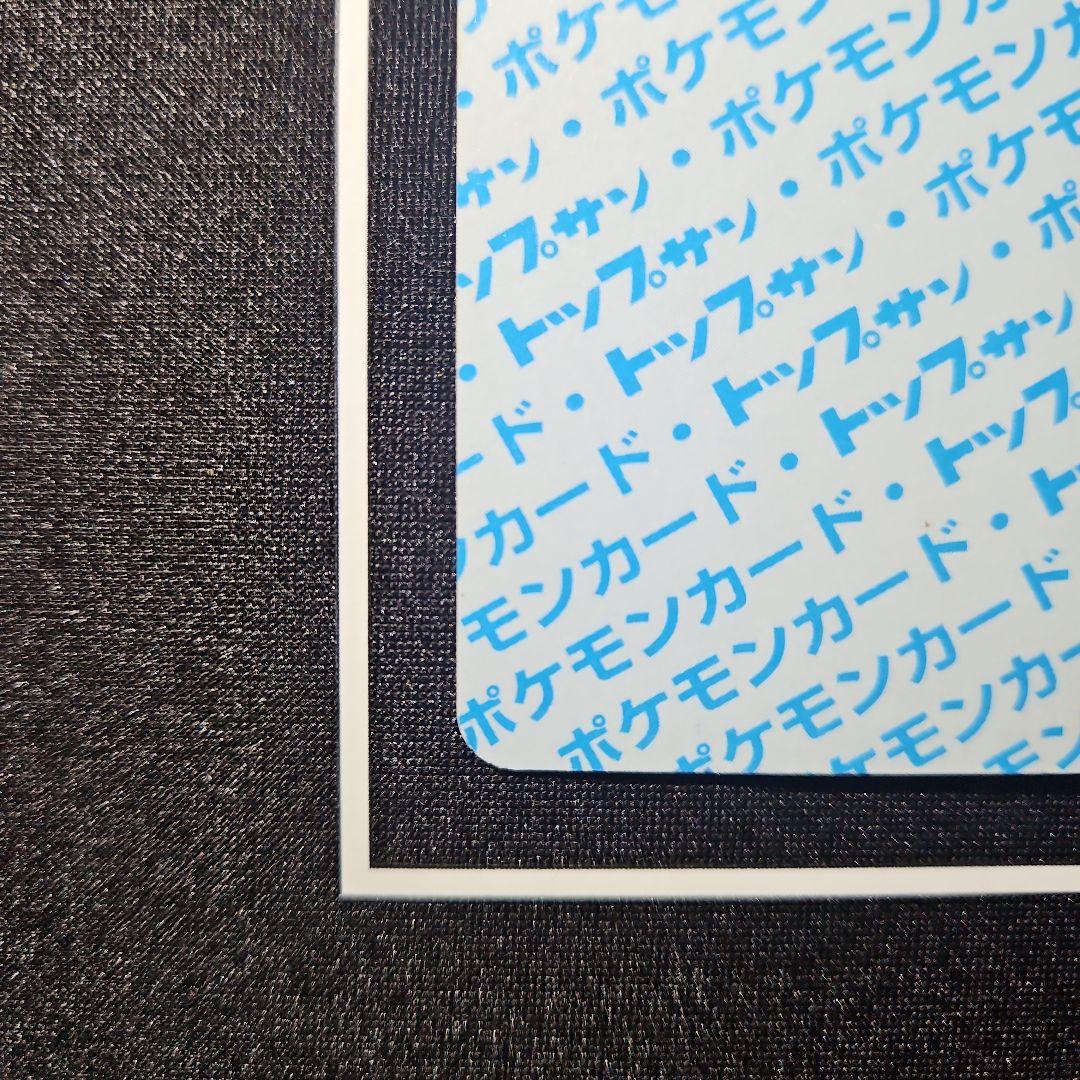 ・ポケモ
サン・ポケモン
ップサン・ポケモンカ
・トップサン・ポケモンカ
ード・トップサン・ポケモ
ンカード・トップサン・ポ
モンカード・トップサン
ポケモンカード・トップ
ポケモンカード・ト
ポケモンカード
ケモンカー
モン